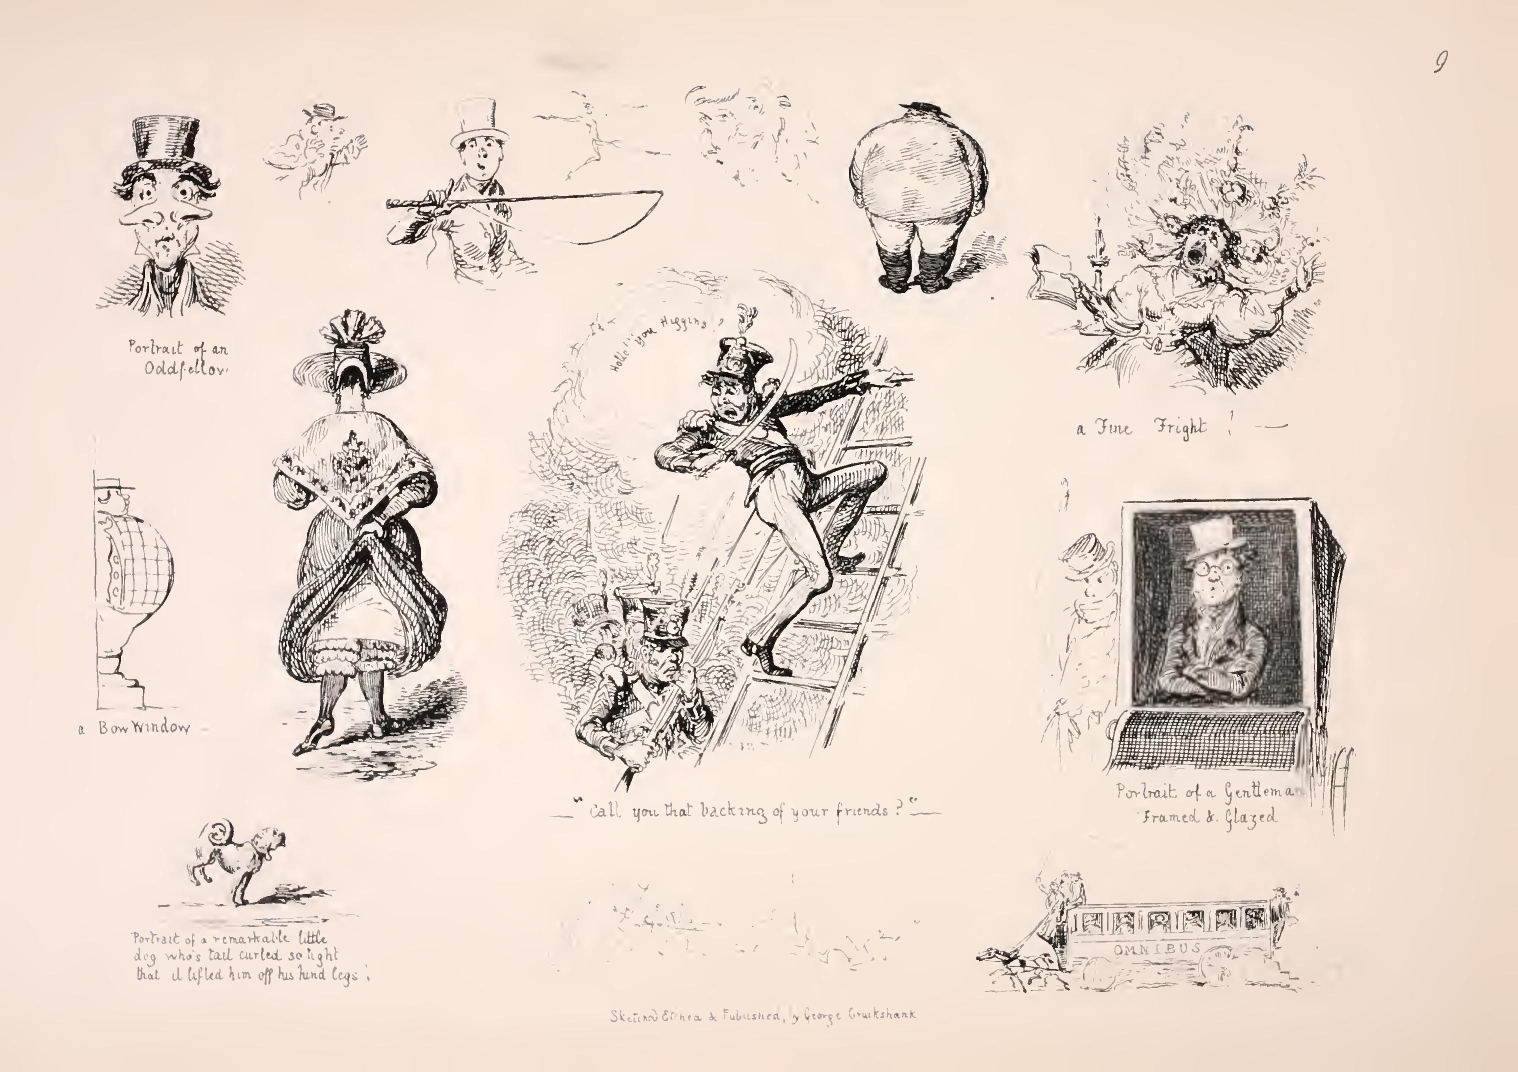 9
Portrait of an
Oddfellow
Hollo you Higgins!
a Fine Fright !
a Bow Window
"Call you that backing of your friends?"
Portrait of a Gentleman
Framed & Glazed
Portrait of a remarkable little
dog who's tail curled so tight
that it lifted him off his hind legs!
OMNIBUS
Sketched Etched & Published, by George Cruikshank